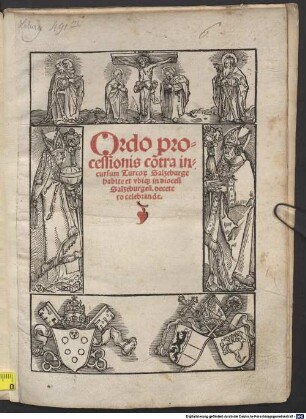 Ordo pro-
cessionis cōtra in-
cursum Turcoꝝ Salzeburge
habite et vbiqꝫ in diocesi
Salzeburgeñ. decete
ro celebrande.
Digitalisierung gefördert durch die Deutsche Forschungsgemeinschaft